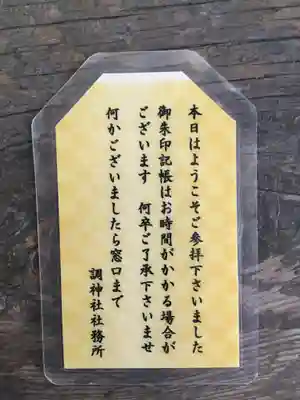 本日はようこそご参拝下さいました
御朱印記帳はお時間がかかる場合が
ございます　何卒ご了承下さいませ
何かございましたら窓口まで
調神社社務所